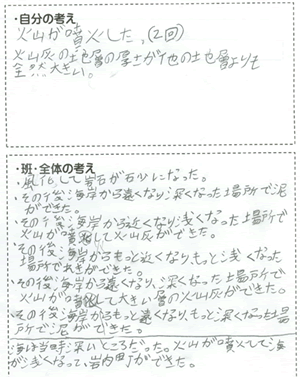 ・自分の考え
火山が噴火した。(2回)
火山灰の地層の厚さが他の地層よりも
全然大きい。
・班・全体の考え
・風化して岩石が石少になった。
・その後海岸から遠くなり深くなった場所で泥
ができた。
・その後海岸から近くなり浅くなった場所で
火山が噴火して火山灰ができた。
・その後海岸からもっと近くなりもっと浅くなった
場所で ができた。
・その後海岸から遠くなり、深くなった場所で
火山が噴火して大きい層の火山灰ができた。
・その後海岸からもっと遠くなりもっと深くなった場
所で泥ができた。
海は当時深いところだった。火山が噴火して海
が浅くなって、岩内町ができた。